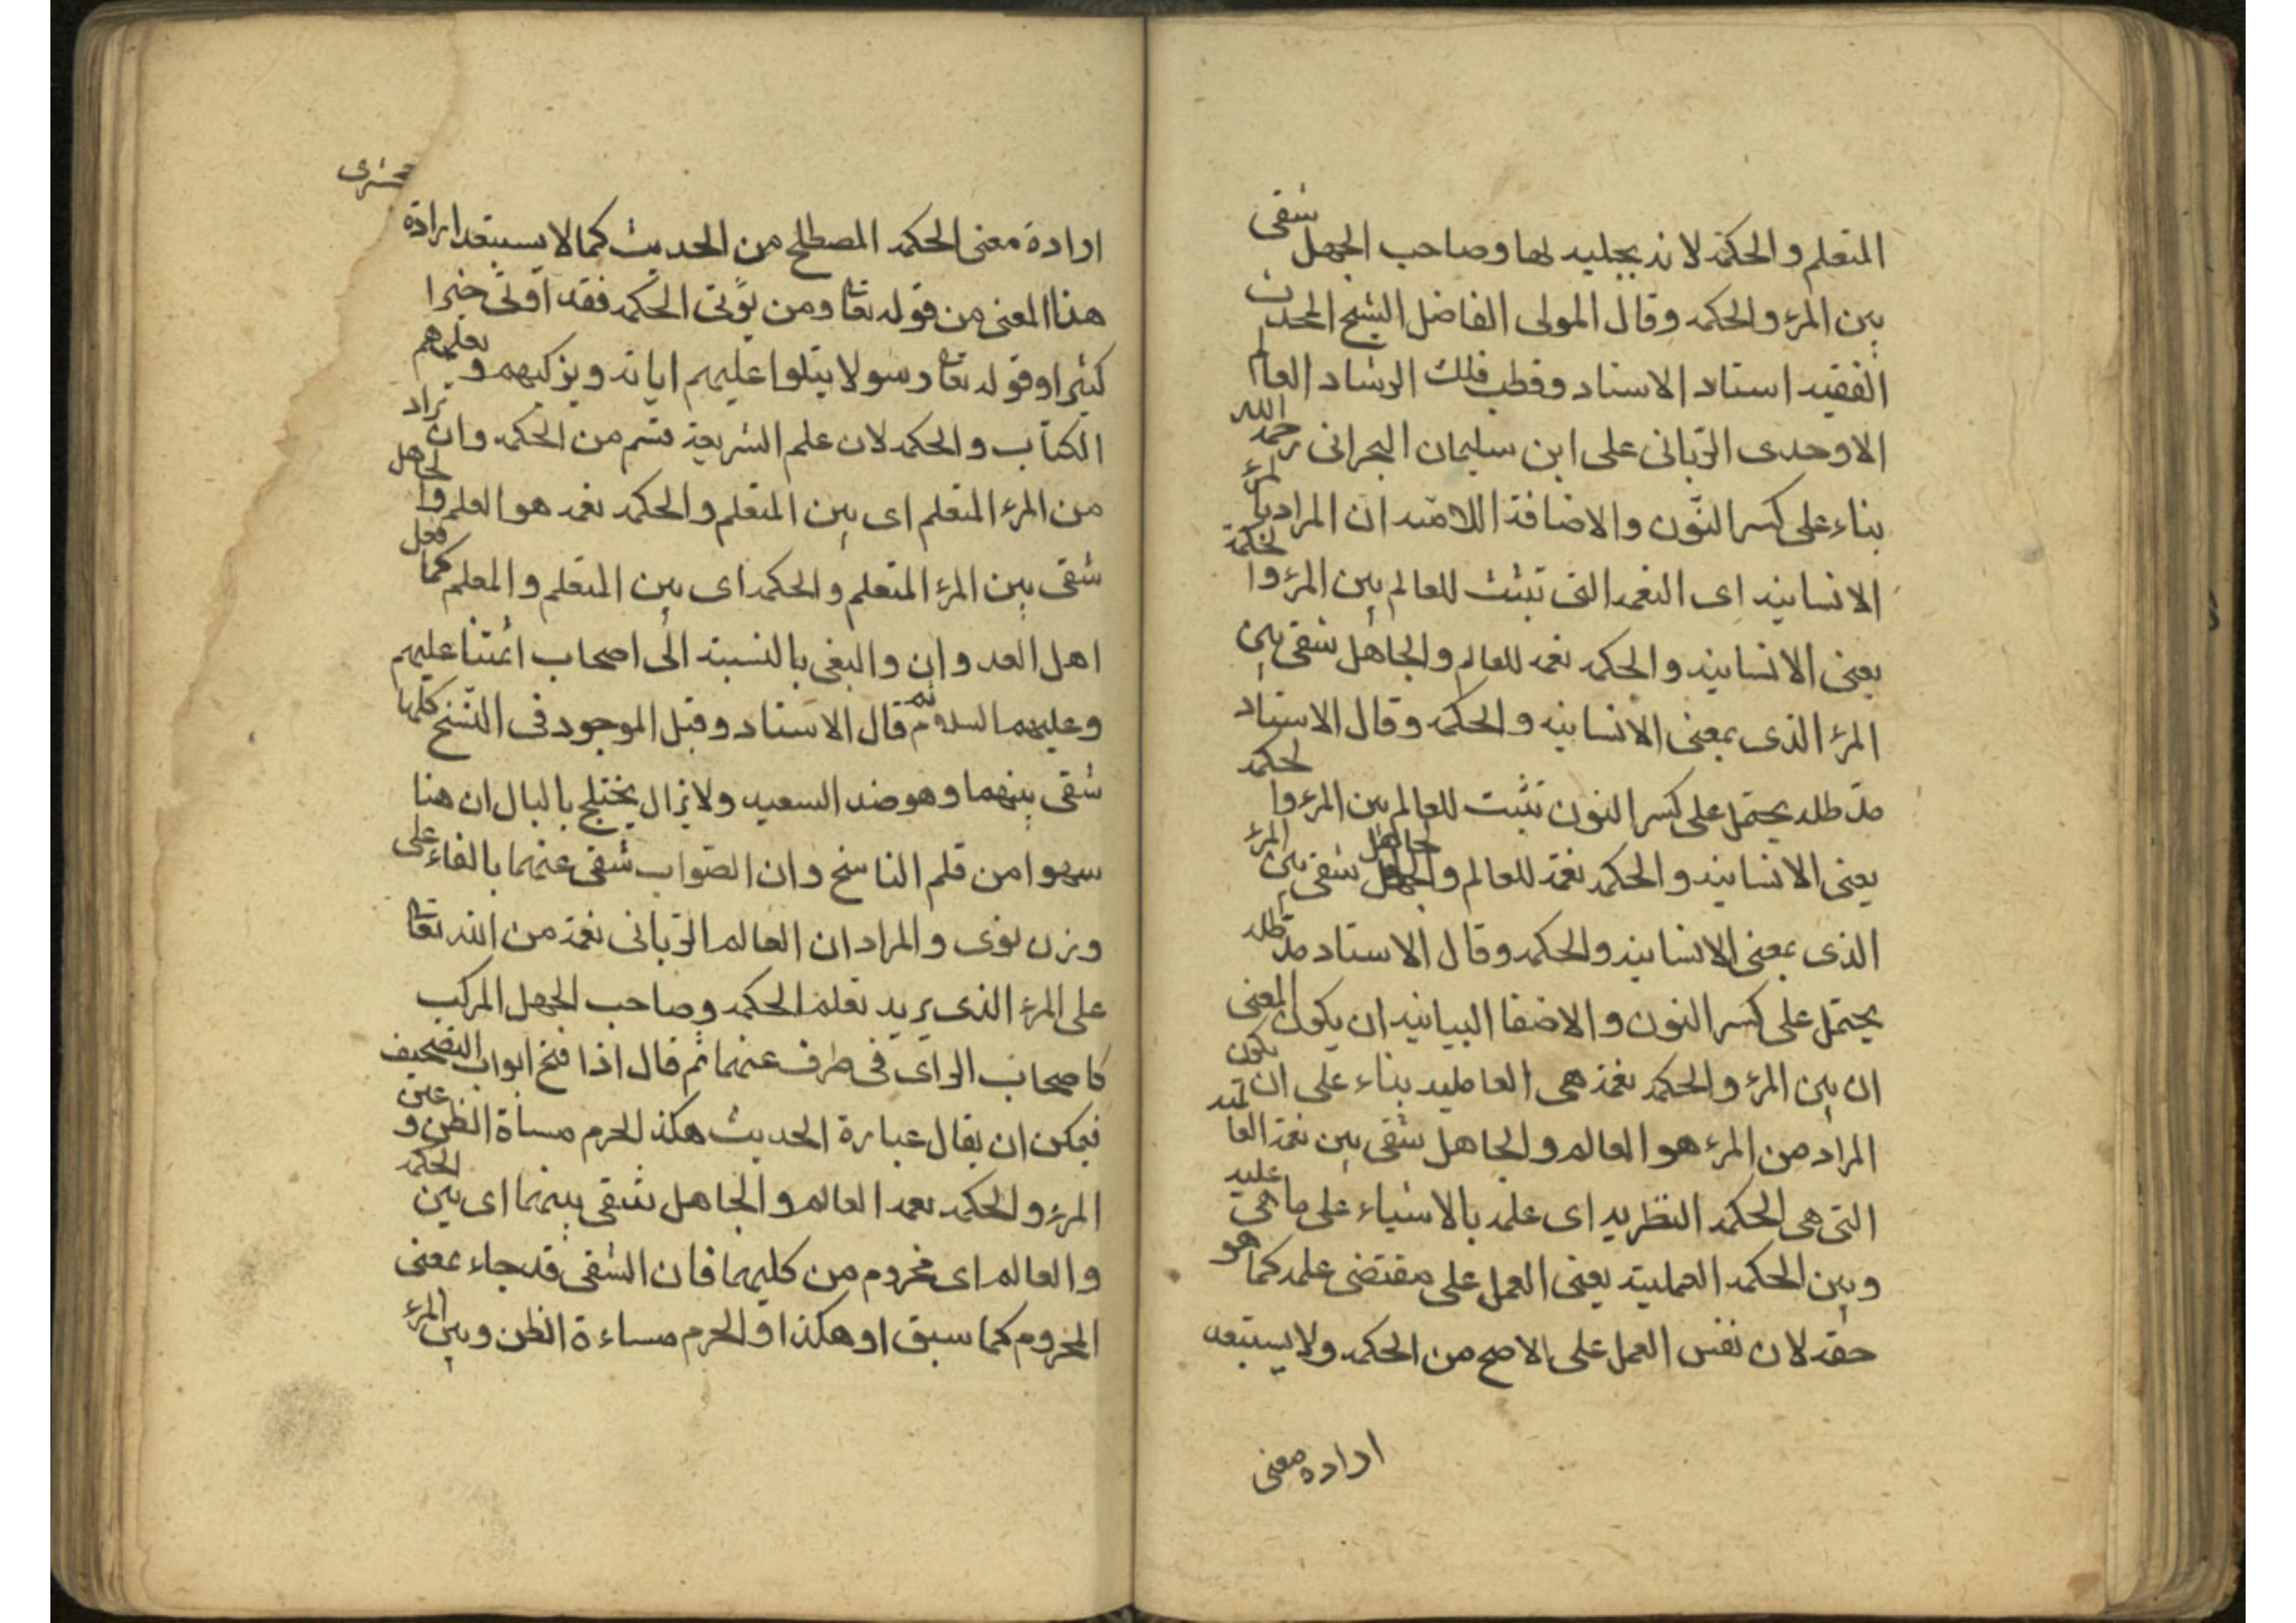 المتعلم والحكمة لانه يجليه لها وصاحب الجهل شقى
بين المرء والحكمه وقال المولى الفاضل الشيخ المحدث
الفقيه استاد الاستاد وقطب فلك الرشاد العالم
الاوحدى الربّانى على ابن سليمان البحرانى رحمه الله
بناء على كسر النّون والاضافة اللامّيه ان المراد بالمرء
الانسانيه اى النعمه التى تثبت للعالم بين المرء والحكمة
يعنى الانسانيه والحكمه نعمه للعالم والجاهل شقى بين
المرء الذى بمعنى الانسانيه والحكمه وقال الاستاد
مدّ ظله يحتمل على كسر النون تثبت للعالم بين المرء والحكمه
يعنى الانسانيه والحكمه نعمة للعالم والجاهل شقى بين المرء
الذى بمعنى الانسانيه والحكمه وقال الاستاد مدّ ظله
يحتمل على كسر النون والاضفا البيانيه ان يكون المعنى
ان بين المرء والحكمه نعمة هى العالميه بناء على ان يكون
المراد من المرء هو العالم والجاهل شقى بين نعمة العالميه
التى هى الحكمه النظريه اى علمه بالاشياء على ما هى عليه
وبين الحكمه العمليته يعنى العمل على مقتضى علمه كما هو
حقه لان نفس العمل على الاصح من الحكمه ولا يستبعد
اراده معنى
محشرى
ارادة معنى الحكمه المصطلح من الحديث كما لا يستبعد ارادة
هذا المعنى من قوله تعا ومن يؤتى الحكمه فقد اوتى خيرا
كثيرا وقوله تعا رسولا يتلوا عليهم اياته ويزكيهم ويعلمهم
الكتاب والحكمه لان علم الشريعة قسم من الحكمه وان يراد
من المرء المتعلم اى بين المتعلم والحكمه نعمه هو العلم والجاهل
شقى بين المرء المتعلم والحكمه اى بين المتعلم والمعلم كما فعل
اهل العدوان والبغى بالنسبة الى اصحاب ائمتنا عليهم
وعليهما السلام ثم قال الاستاد وقيل الموجود فى النّسخ كلها
شقى بينهما وهو ضد السعيد ولا يزال يختلج بالبال ان هنا
سهوا من قلم الناسخ وان الصّواب شقى عنهما بالفاء على
وزن نوى والمراد ان العالم الربّانى نعمة من الله تعا
على المرء الذى يريد تعلم الحكمه وصاحب الجهل المركب
كاصحاب الراى فى طرف عنهما ثم قال اذا فتح ابواب التصحيف
فيمكن ان يقال عبارة الحديث هكذا لحرم مساة الظن وعين
المرء والحكمه نعمه العالم والجاهل شقى بينهما اى بين الحكمه
والعالم اى محروم من كليهما فان الشقى قد جاء بمعنى
المحروم كما سبق او هكذا والحرم مساءة الظن وبين المرء